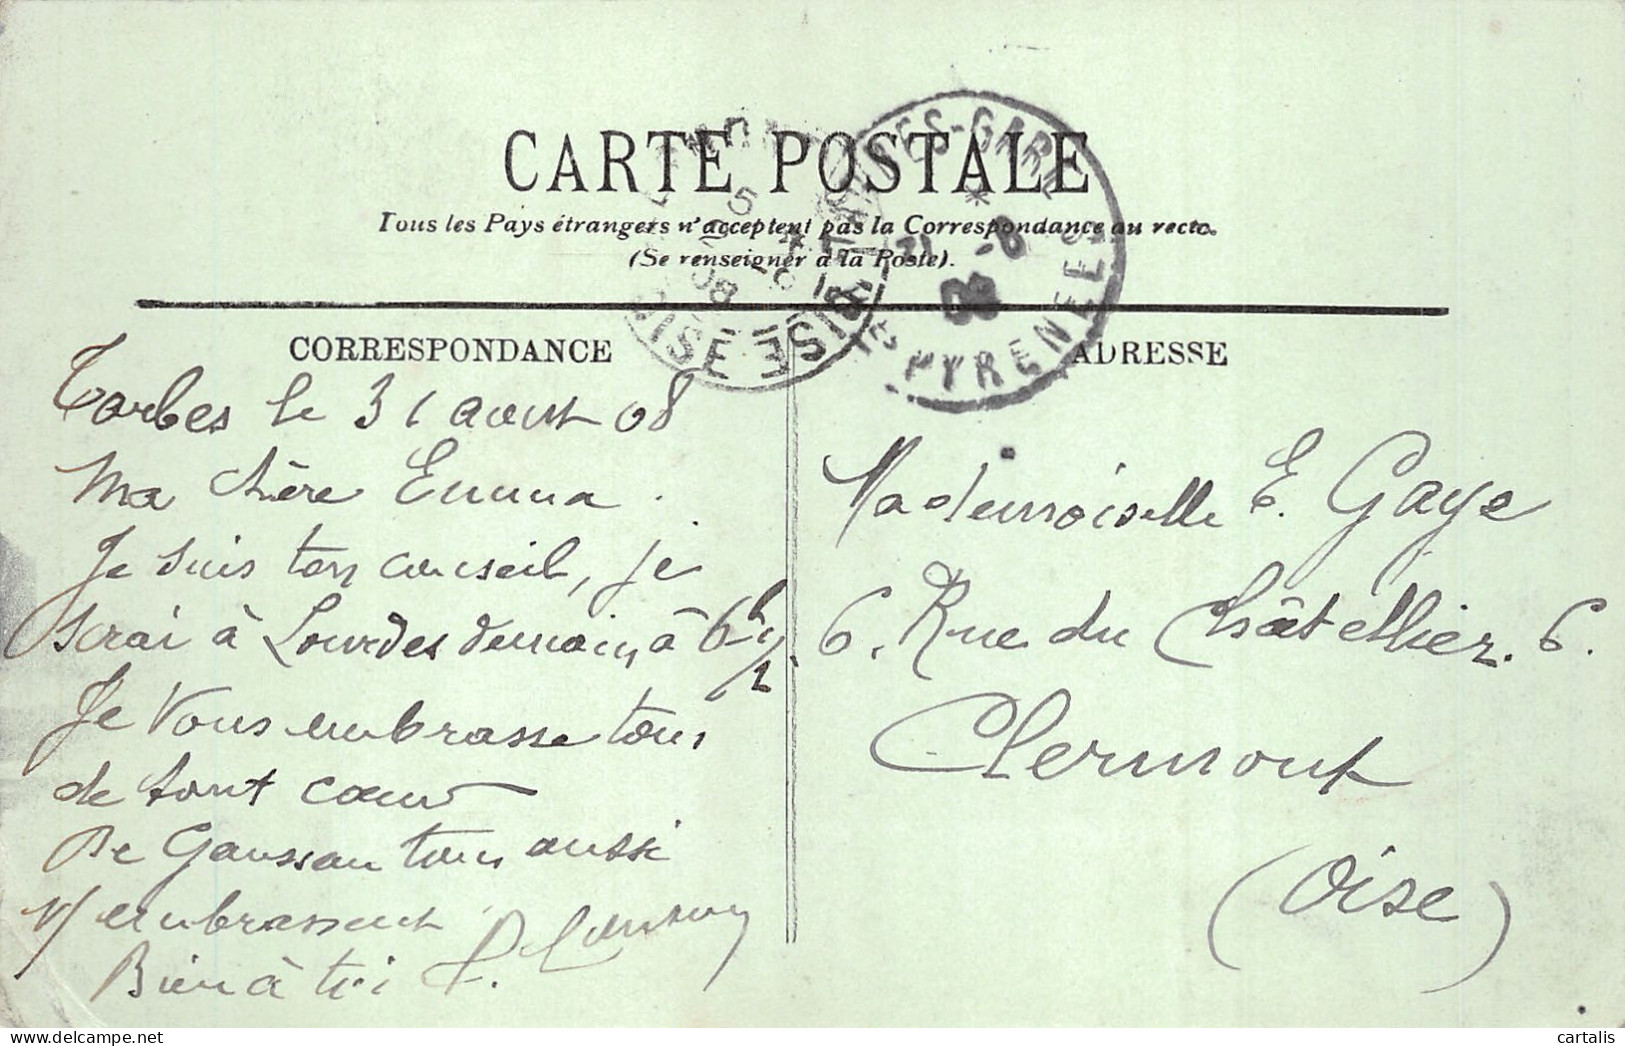 CARTE POSTALE
Tous les Pays étrangers n'acceptent pas la Correspondance au recto.
(Se renseigner à la Poste).
TARBES-GARE
31 -8
08
HTES PYRENEES
5
08
OISE
CORRESPONDANCE
Tarbes le 31 aout 08
Ma chère Emma.
Je suis ton conseil, je
serai à Lourdes demain à 6h 1/2.
Je vous embrasse tous
de tout cœur
De Gaussan tous aussi
v/ embrassent
Bien à toi
ADRESSE
Mademoiselle E. Gaye
6. Rue du Châtellier. 6.
Clermont
(Oise)
cartalis